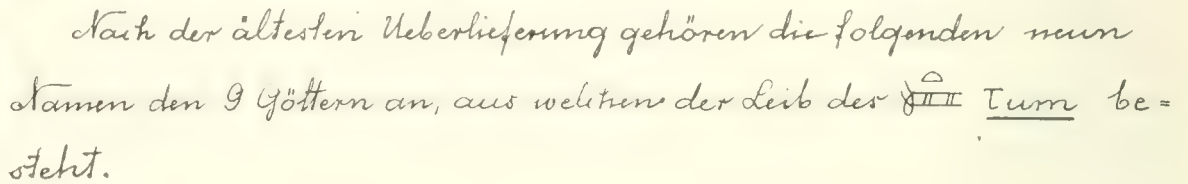 Nach der ältesten Ueberlieferung gehören die folgenden neun
Namen den 9 Göttern an, aus welchen der Leib des 𓏏𓍃 Tum be=
steht.